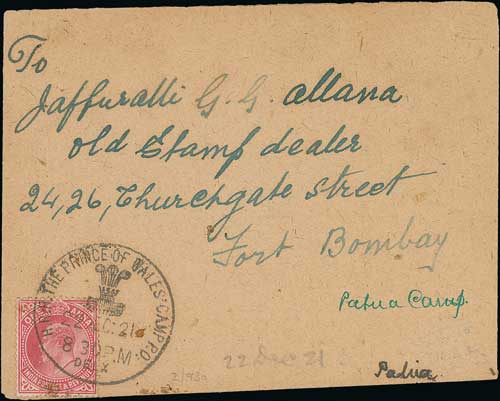 To
Jaffuralli G. G. allana
old Stamp dealer
24, 26, Churchgate street
Fort Bombay
Patna Camp.
H.R.H. THE PRINCE OF WALES' CAMP P.O.
DEC. 21
8 30 P.M.
22 Dec 21
Patna